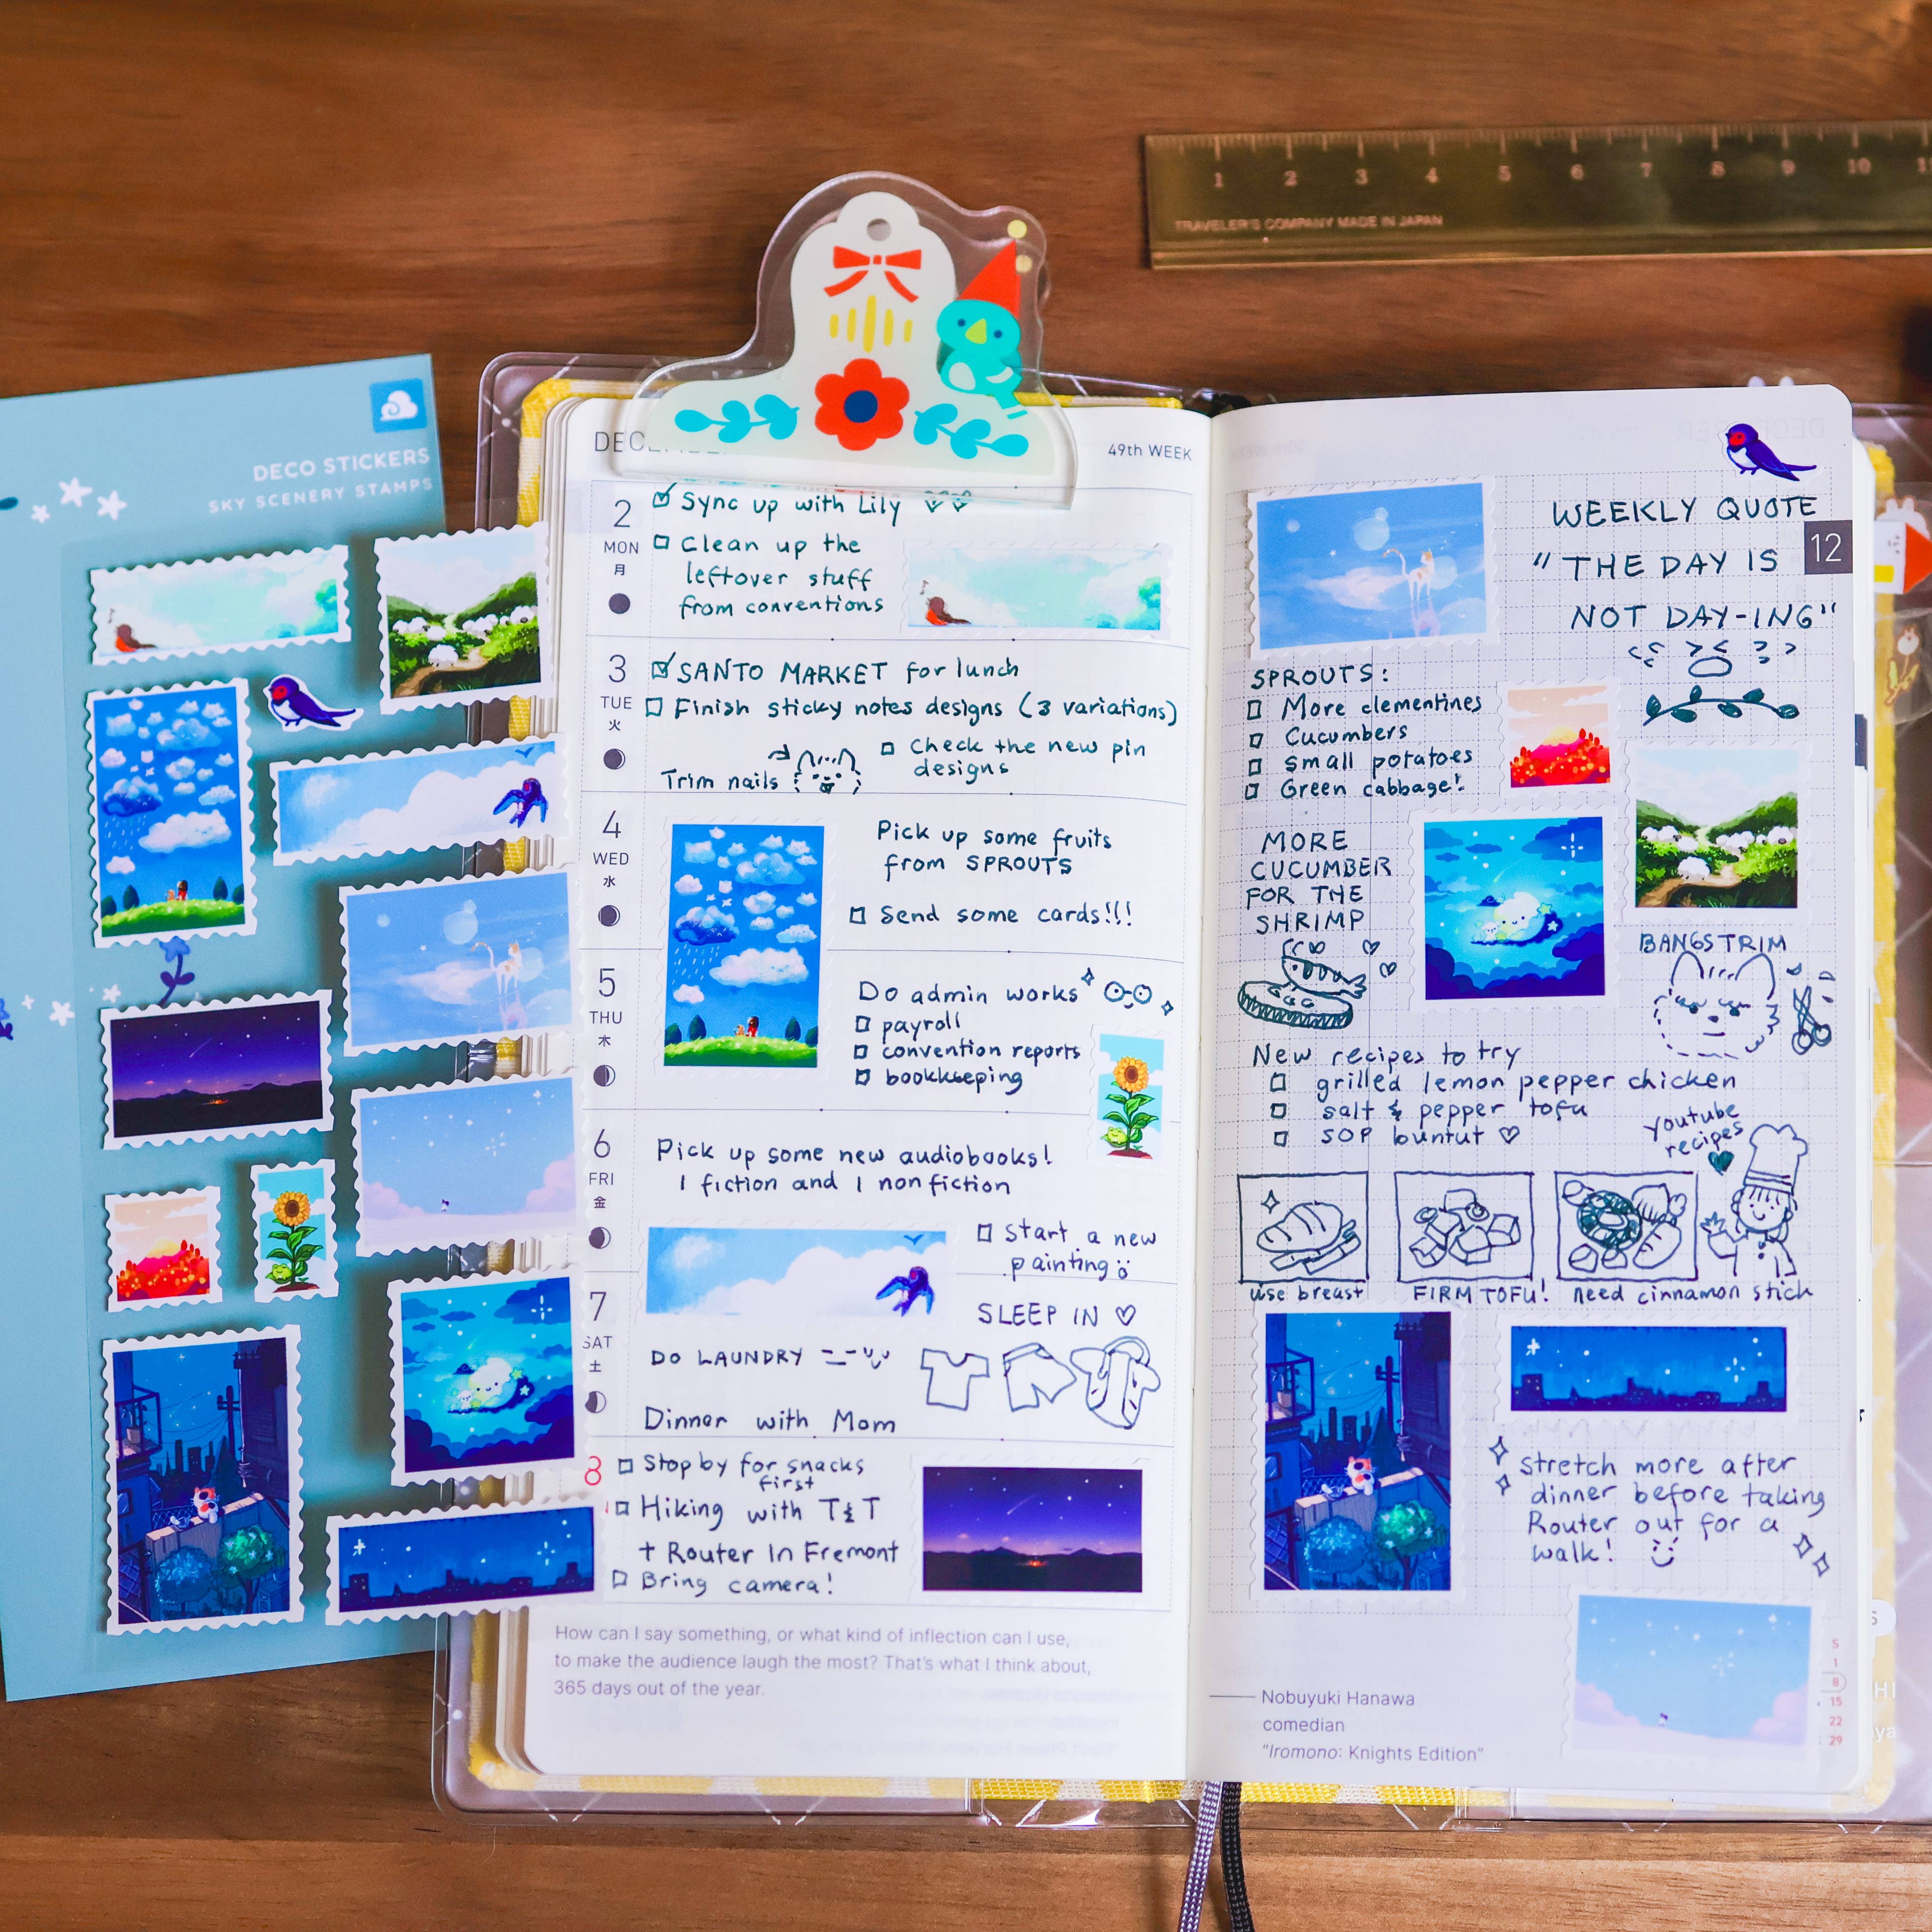 1 2 3 4 5 6 7 8 9 10
TRAVELER'S COMPANY MADE IN JAPAN
DECO STICKERS
SKY SCENERY STAMPS
49th WEEK
2
MON
月
Sync up with Lily
Clean up the
leftover stuff
from conventions
3
TUE
火
SANTO MARKET for lunch
Finish sticky notes designs (3 variations)
Trim nails
Check the new pin
designs
4
WED
水
Pick up some fruits
from SPROUTS
Send some cards!!!
5
THU
木
Do admin works
payroll
convention reports
bookkeeping
6
FRI
金
Pick up some new audiobooks!
1 fiction and 1 nonfiction
Start a new
painting
7
SAT
土
SLEEP IN ♡
DO LAUNDRY
Dinner with Mom
8
Stop by for snacks
first
Hiking with T&T
+ Router in Fremont
Bring camera!
How can I say something, or what kind of inflection can I use,
to make the audience laugh the most? That's what I think about,
365 days out of the year.
WEEKLY QUOTE
12
"THE DAY IS
NOT DAY-ING"
SPROUTS:
More clementines
Cucumbers
Small potatoes
Green cabbage!
MORE
CUCUMBER
FOR THE
SHRIMP
BANGS TRIM
New recipes to try
grilled lemon pepper chicken
salt & pepper tofu
SOP buntut ♡
youtube
recipes
use breast
FIRM TOFU!
need cinnamon stick
stretch more after
dinner before taking
Router out for a
walk!
Nobuyuki Hanawa
comedian
"Iromono: Knights Edition"
S
1
8
15
22
29